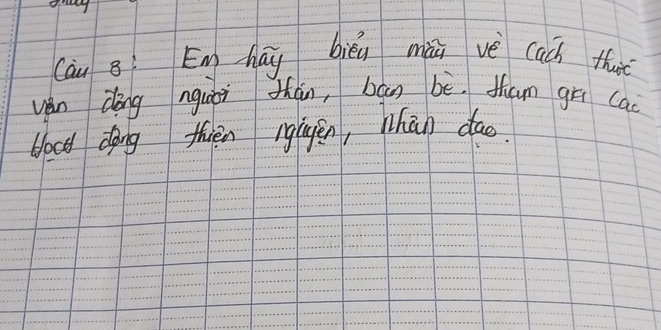 Câu 8: Em hãy biểu mẫu về cách thức
vận động người thân, bạn bè. tham gia các
hoạt động thiện nguyện, nhân đạo.